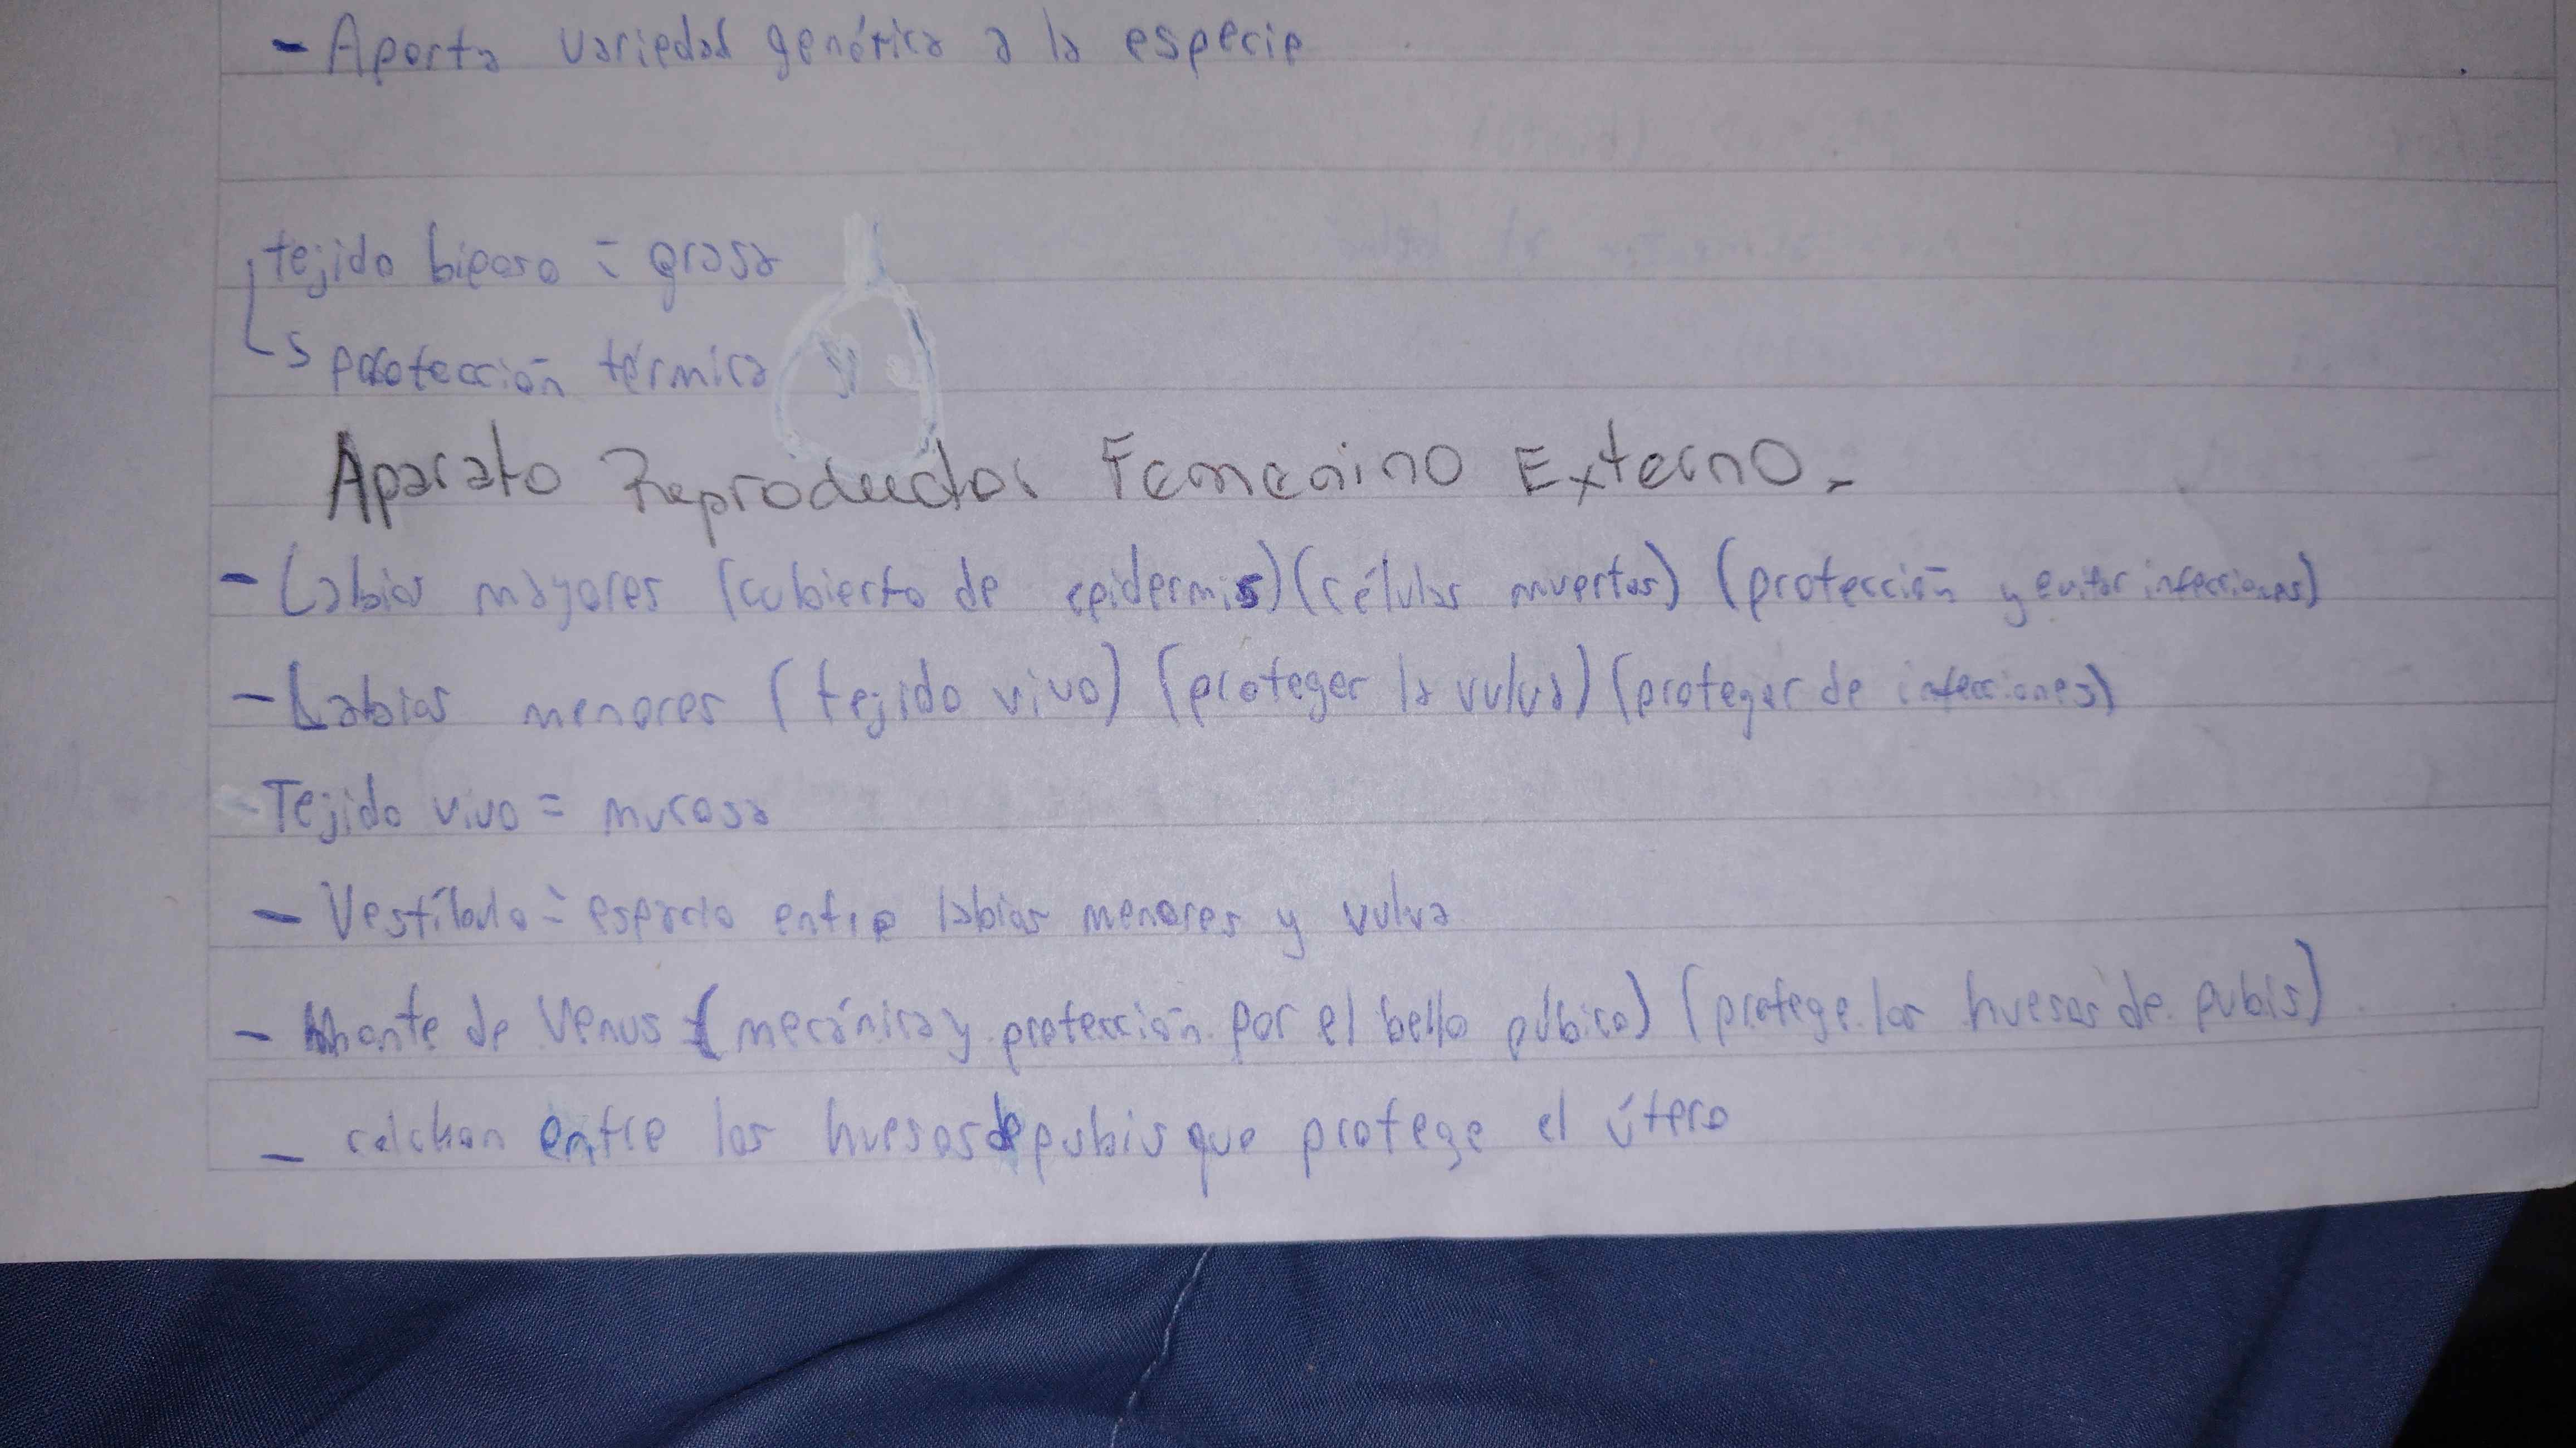 - Aporta variedad genética a la especie
tejido biposo = grasa
protección térmica
Aparato Reproductor Femenino Externo.
- Labios mayores (cubierto de epidermis) (células muertas) (protección y evitar infecciones)
- Labios menores (tejido vivo) (proteger la vulva) (proteger de infecciones)
- Tejido vivo = mucosa
- Vestíbulo = espacio entre labios menores y vulva
- Monte de Venus (mecánica y protección por el bello púbico) (protege los huesos de pubis)
- colchon entre los huesos de pubis que protege el útero